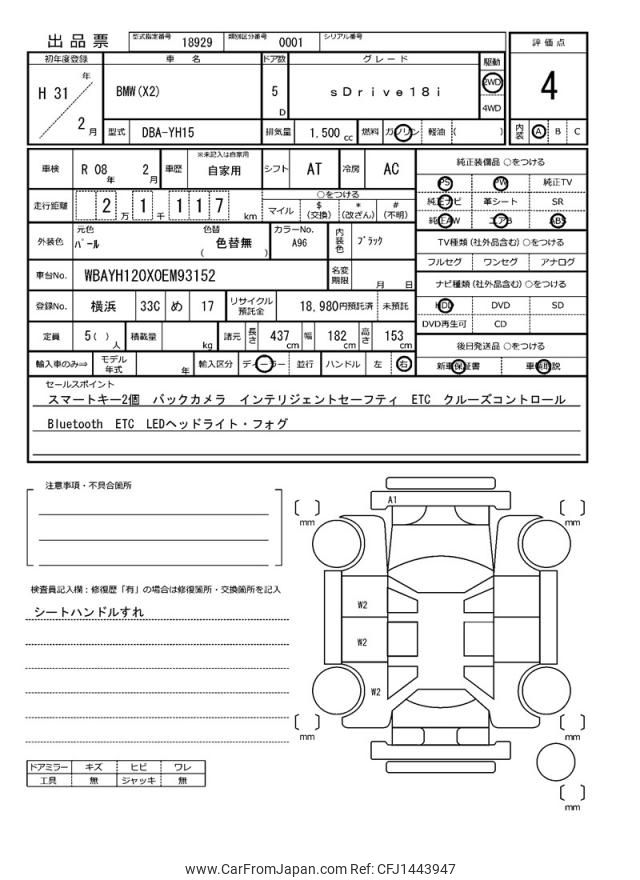 出品票 型式指定番号 18929 類別区分番号 0001 シリアル番号
初年度登録 車名 ドア数 グレード 駆動 評価点
H 31 年 2 月 BMW(X2) 5 D sDrive18i 2WD 4WD 4
型式 DBA-YH15 排気量 1.500 cc 燃料 ガソリン 軽油 ( ) 内装 A B C
車検 R 08 年 2 月 車歴 ※未記入は自家用 自家用 シフト AT 冷房 AC 純正装備品 ○をつける
PS PW 純正TV
走行距離 2 万 1 千 1 1 7 km ○をつける
マイル $(交換) *(改ざん) #(不明)
純正ナビ 革シート SR
純正AW エアB ABS
外装色 元色 パール 色替 色替無 ( ) カラーNo. A96 内装色 ブラック
TV種類 (社外品含む) ○をつける
フルセグ ワンセグ アナログ
車台No. WBAYH120X0EM93152 名変期限 月 日
ナビ種類 (社外品含む) ○をつける
登録No. 横浜 33C め 17 リサイクル預託金 18,980円預託済 未預託
HDD DVD SD
DVD再生可 CD
定員 5( ) 人 積載量 kg 諸元 長さ 437 cm 幅 182 cm 高さ 153 cm
後日発送品 ○をつける
輸入車のみ⇒ モデル年式 年 輸入区分 ディーラー 並行 ハンドル 左 右
新車保証書 車輌取説
セールスポイント
スマートキー2個 バックカメラ インテリジェントセーフティ ETC クルーズコントロール
Bluetooth ETC LEDヘッドライト・フォグ
注意事項・不具合箇所
A1
mm
mm
検査員記入欄：修復歴「有」の場合は修復箇所・交換箇所を記入
シートハンドルすれ
W2
W2
W2
mm
mm
mm
ドアミラー キズ ヒビ ワレ
工具 無 ジャッキ 無
www.CarFromJapan.com Ref: CFJ1443947